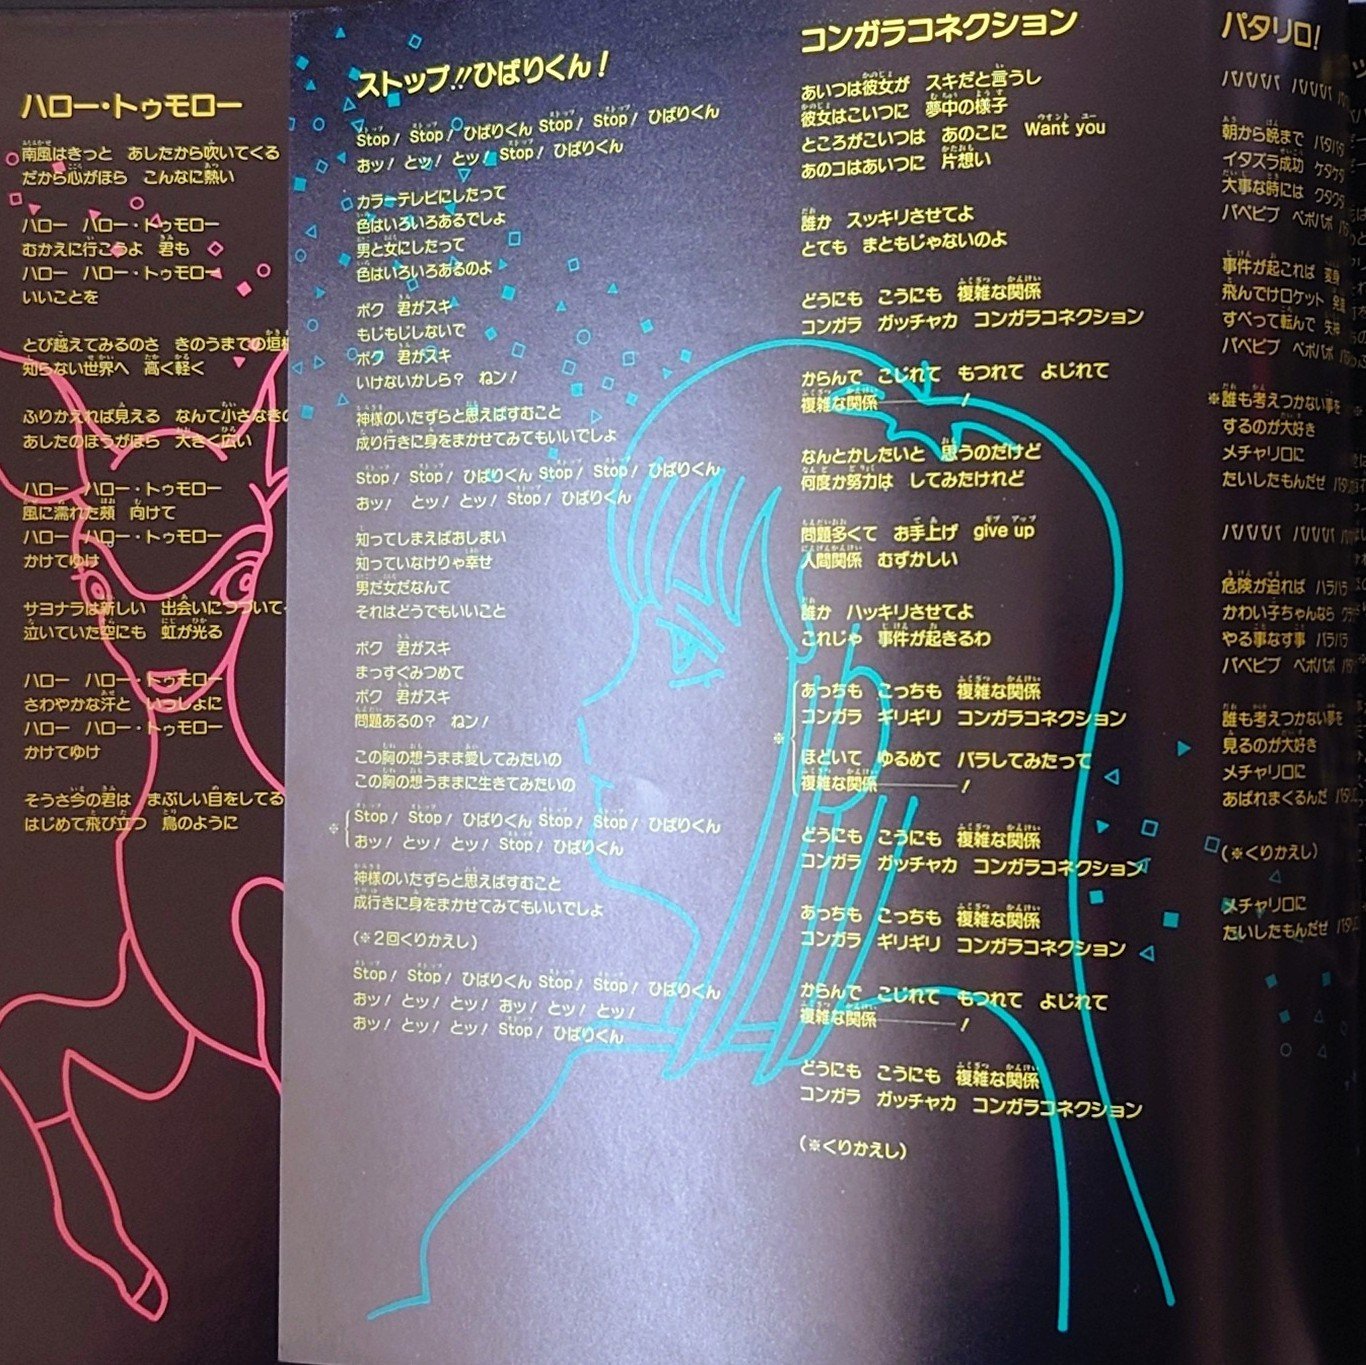 ハロー・トゥモロー
南風はきっと　あしたから吹いてくる
だから心がほら　こんなに熱い
ハロー　ハロー・トゥモロー
むかえに行こうよ　君も
ハロー　ハロー・トゥモロー
いいことを
とび越えてみるのさ　きのうまでの垣根
知らない世界へ　高く軽く
ふりかえれば見える　なんて小さなきの
あしたのほうがほら　大きく広い
ハロー　ハロー・トゥモロー
風に濡れた頬　向けて
ハロー　ハロー・トゥモロー
かけてゆけ
サヨナラは新しい　出会いにつづいて
泣いていた空にも　虹が光る
ハロー　ハロー・トゥモロー
さわやかな汗と　いっしょに
ハロー　ハロー・トゥモロー
かけてゆけ
そうさ今の君は　まぶしい目をしてる
はじめて飛び立つ　鳥のように
ストップ!!ひばりくん!
Stop! Stop! ひばりくん Stop! Stop! ひばりくん
おッ! とッ! とッ! Stop! ひばりくん
カラーテレビにしたって
色はいろいろあるでしょ
男と女にしたって
色はいろいろあるのよ
ボク　君がスキ
もじもじしないで
ボク　君がスキ
いけないかしら？　ねン!
神様のいたずらと思えばすむこと
成り行きに身をまかせてみてもいいでしょ
Stop! Stop! ひばりくん Stop! Stop! ひばりくん
おッ!　とッ! とッ! Stop! ひばりくん
知ってしまえばおしまい
知っていなけりゃ幸せ
男だ女だなんて
それはどうでもいいこと
ボク　君がスキ
まっすぐみつめて
ボク　君がスキ
問題あるの？　ねン!
この胸の想うまま愛してみたいの
この胸の想うままに生きてみたいの
※ Stop! Stop! ひばりくん Stop! Stop! ひばりくん
おッ! とッ! とッ! Stop! ひばりくん
神様のいたずらと思えばすむこと
成行きに身をまかせてみてもいいでしょ
(※2回くりかえし)
Stop! Stop! ひばりくん Stop! Stop! ひばりくん
おッ! とッ! とッ! おッ! とッ! とッ!
おッ! とッ! とッ! Stop! ひばりくん
コンガラコネクション
あいつは彼女が　スキだと言うし
彼女はこいつに　夢中の様子
ところがこいつは　あのこに　Want you
あのコはあいつに　片想い
誰か　スッキリさせてよ
とても　まともじゃないのよ
どうにも　こうにも　複雑な関係
コンガラ　ガッチャカ　コンガラコネクション
からんで　こじれて　もつれて　よじれて
複雑な関係――――!
なんとかしたいと　思うのだけど
何度か努力は　してみたけれど
問題多くて　お手上げ　give up
人間関係　むずかしい
誰か　ハッキリさせてよ
これじゃ　事件が起きるわ
※ あっちも　こっちも　複雑な関係
コンガラ　ギリギリ　コンガラコネクション
ほどいて　ゆるめて　バラしてみたって
複雑な関係――――!
どうにも　こうにも　複雑な関係
コンガラ　ガッチャカ　コンガラコネクション
あっちも　こっちも　複雑な関係
コンガラ　ギリギリ　コンガラコネクション
からんで　こじれて　もつれて　よじれて
複雑な関係――――!
どうにも　こうにも　複雑な関係
コンガラ　ガッチャカ　コンガラコネクション
(※くりかえし)
パタリロ!
パパパパ　パパパパ
朝から晩まで　パタパタ
イタズラ成功　ケタケタ
大事な時には　クタクタ
パペピプ　ペポパポ
事件が起これば　変身
飛んでけロケット　発進
すべって転んで　失神
パペピプ　ペポパポ
※誰も考えつかない事を
するのが大好き
メチャリロに
たいしたもんだぜ
パパパパ　パパパパ
危険が迫れば　ハラハラ
かわい子ちゃんなら
やる事なす事　バラバラ
パペピプ　ペポパポ
誰も考えつかない夢を
見るのが大好き
メチャリロに
あばれまくるんだ
(※くりかえし)
メチャリロに
たいしたもんだぜ